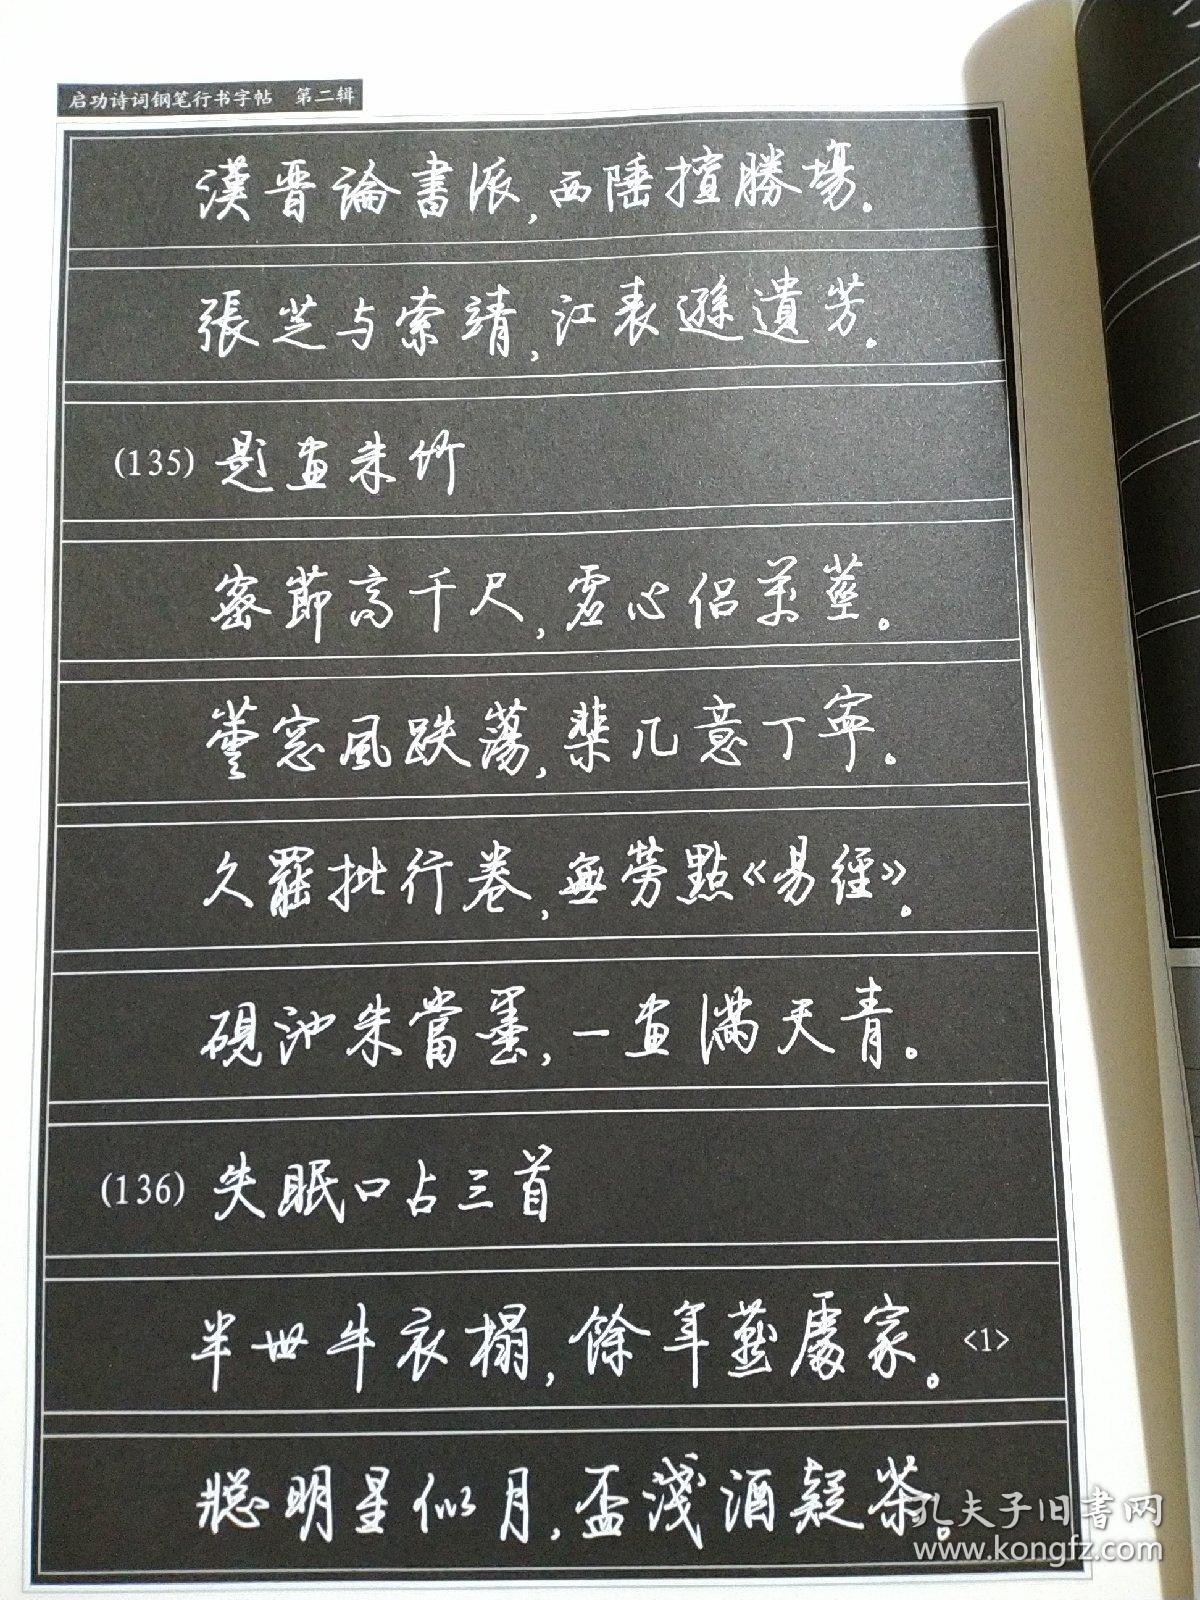 启功诗词钢笔行书字帖 第二辑
漢晋論書派,西陲擅勝場。
張芝与索靖,江表遜遺芳。
(135) 题畫朱竹
密節高千尺,虚心侣萬莖。
窓風跌蕩,棐几意丁寧。
久罷批行卷,無勞點《易經》。
硯池朱當墨,一畫满天青。
(136) 失眠口占三首
半世牛衣榻,餘年甚處家。<1>
聪明星似月,盃淺酒疑茶。
孔夫子旧書网
www.kongfz.com